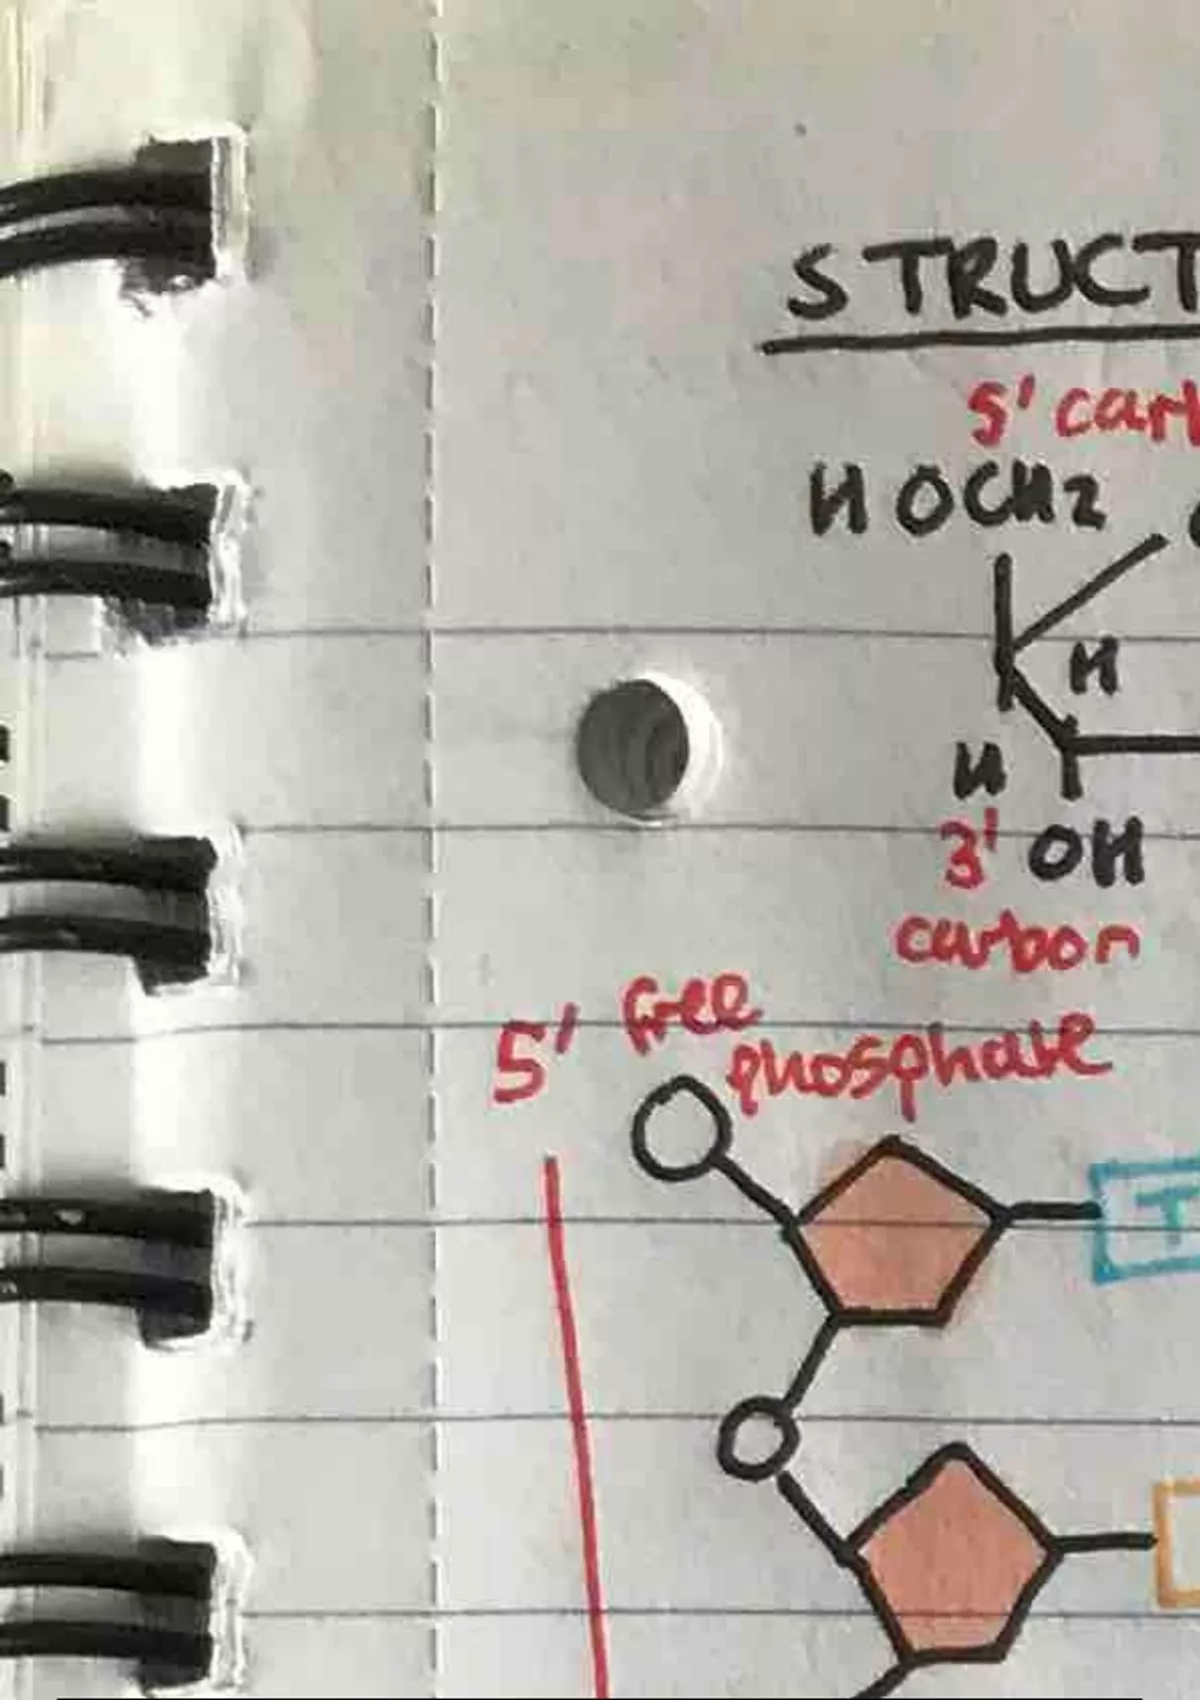 STRUCT
5' carb
HOCH2
H
H
3' OH
carbon
5' free
phosphate
T